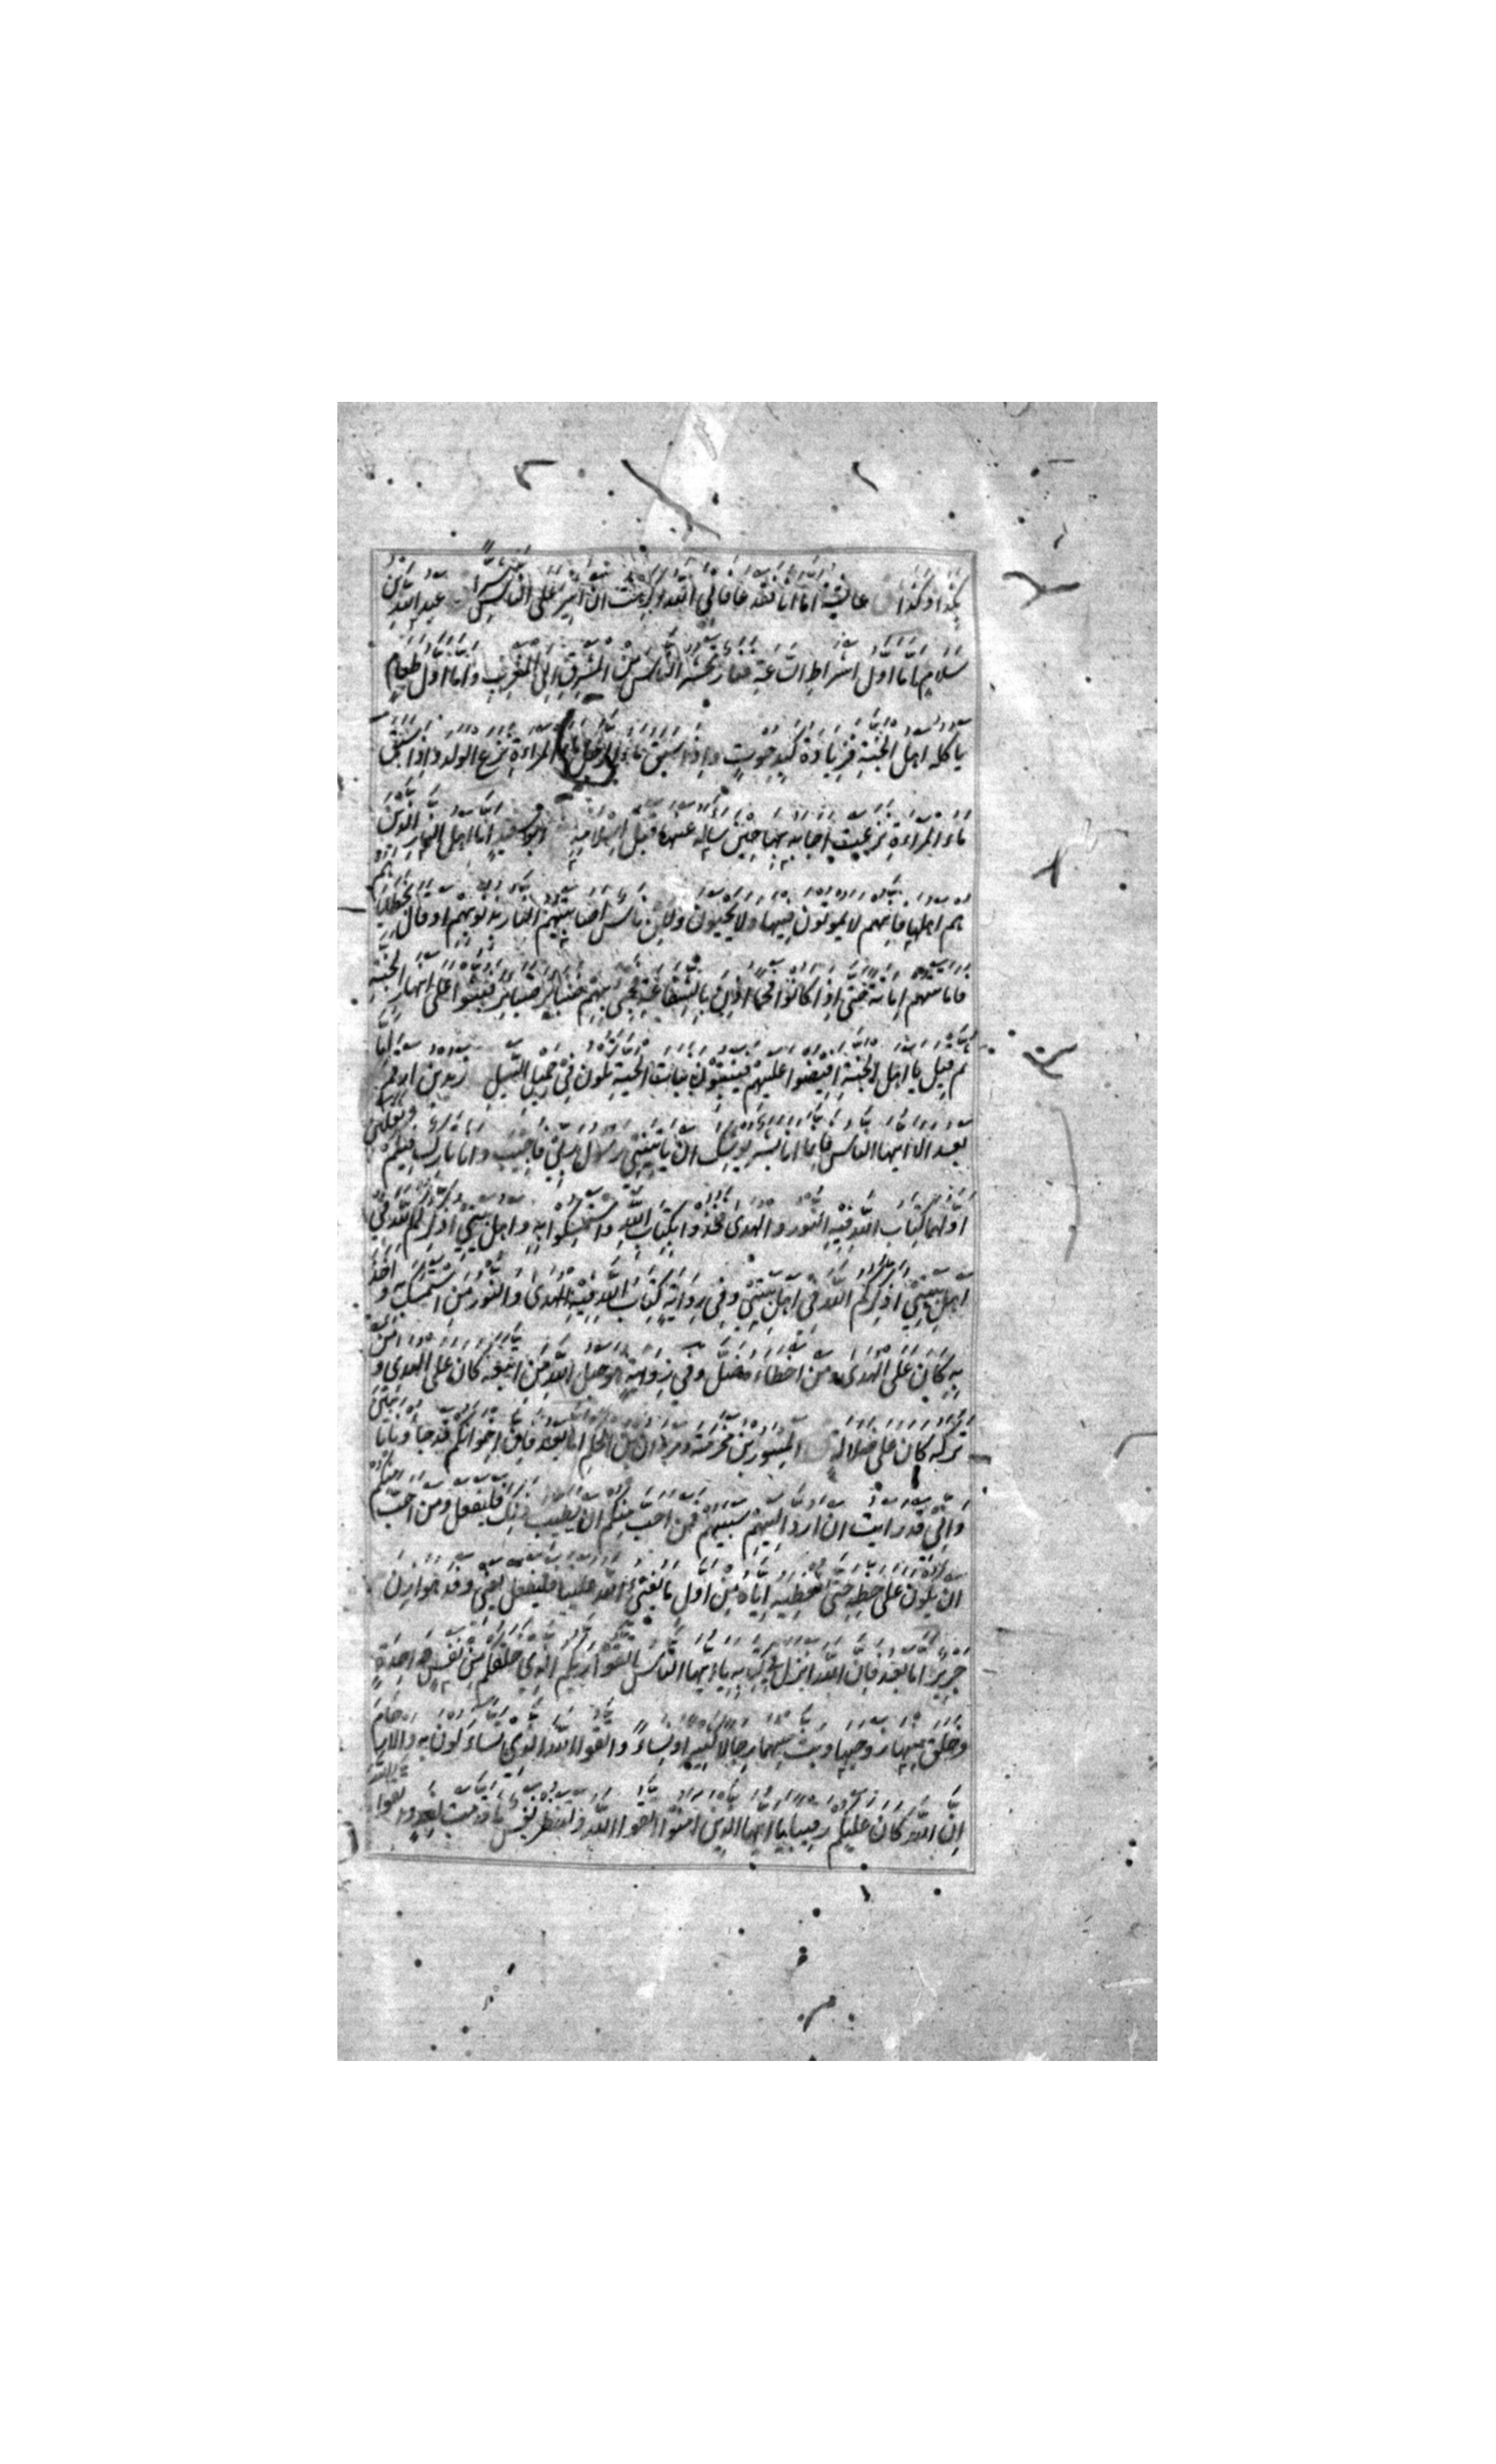 بكذا وكذا عايشة اما انا فقد عافاني الله وكرهت ان اثير على الناس شرا عبد الله بن
سلام اما اول اشراط الساعة فنار تحشر الناس من المشرق الى المغرب واما اول طعام
ياكله اهل الجنة فزيادة كبد حوت واذا سبق ماء الرجل ماء المراءة نزع الولد واذا سبق
ماء المراءة نزعت اجابه بها حين ساله عنها قبل اسلامه ابو سعيد اما اهل النار الذين هم
هم اهلها فانهم لا يموتون فيها ولا يحيون ولكن ناس اصابتهم النار بذنوبهم او قال بخطاياهم
فاماتتهم اماتة حتى اذا كانوا فحما اذن بالشفاعة فجئ بهم ضبائر ضبائر فبثوا على انهار الجنة
ثم قيل يا اهل الجنة افيضوا عليهم فينبتون نبات الحبة تكون في حميل السيل زيد بن ارقم اما
بعد الا ايها الناس فانما انا بشر يوشك ان ياتيني رسول ربي فاجيب وانا تارك فيكم ثقلين
اولهما كتاب الله فيه النور والهدى فخذوا بكتاب الله واستمسكوا به واهل بيتي اذكركم الله في
اهل بيتي اذكركم الله في اهل بيتي وفي رواية كتاب الله فيه الهدى والنور من استمسك به واخذ
به كان على الهدى ومن اخطاءه ضل وفي رواية هو حبل الله من اتبعه كان على الهدى ومن
تركه كان على ضلالة المسور بن مخرمة ومروان بن الحكم اما بعد فان اخوانكم قد جاؤنا تائبين
واني قد رايت ان ارد اليهم سبيهم فمن احب منكم ان يطيب ذلك فليفعل ومن احب منكم
ان يكون على حظه حتى نعطيه اياه من اول ما يفئ الله علينا فليفعل يعني وفد هوازن
جرير اما بعد فان الله انزل في كتابه يا ايها الناس اتقوا ربكم الذي خلقكم من نفس واحدة
وخلق منها زوجها وبث منهما رجالا كثيرا ونساء واتقوا الله الذي تساءلون به والارحام
ان الله كان عليكم رقيبا يا ايها الذين امنوا اتقوا الله ولتنظر نفس ما قدمت لغد واتقوا الله